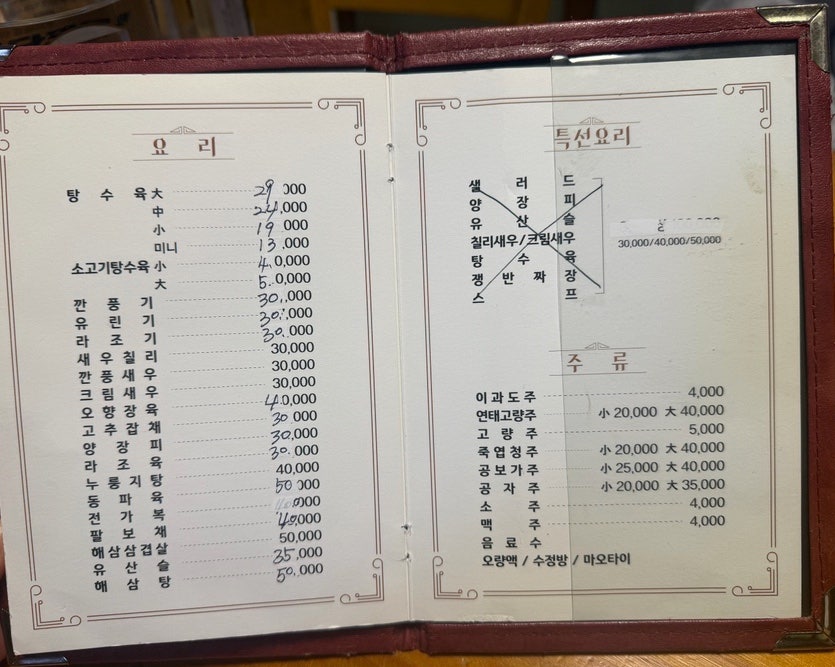 요 리
탕 수 육 大 29,000
中 24,000
小 19,000
미니 13,000
소고기탕수육 小 40,000
大 50,000
깐 풍 기 30,000
유 린 기 30,000
라 조 기 30,000
새 우 칠 리 30,000
깐 풍 새 우 30,000
크 림 새 우 30,000
오 향 장 육 40,000
고 추 잡 채 30,000
양 장 피 30,000
라 조 육 30,000
누 룽 지 탕 40,000
동 파 육 50,000
전 가 복
팔 보 채 40,000
해삼삼겹살 50,000
유 산 슬 35,000
해 삼 탕 50,000
특선요리
샐 러 드
양 장 피
유 산 슬
칠리새우/크림새우 30,000/40,000/50,000
탕 수 육
쟁 반 짜 장
스 프
주 류
이과도주 4,000
연태고량주 小 20,000 大 40,000
고 량 주 5,000
죽엽청주 小 20,000 大 40,000
공보가주 小 25,000 大 40,000
공 자 주 小 20,000 大 35,000
소 주 4,000
맥 주 4,000
음 료 수
오량액 / 수정방 / 마오타이